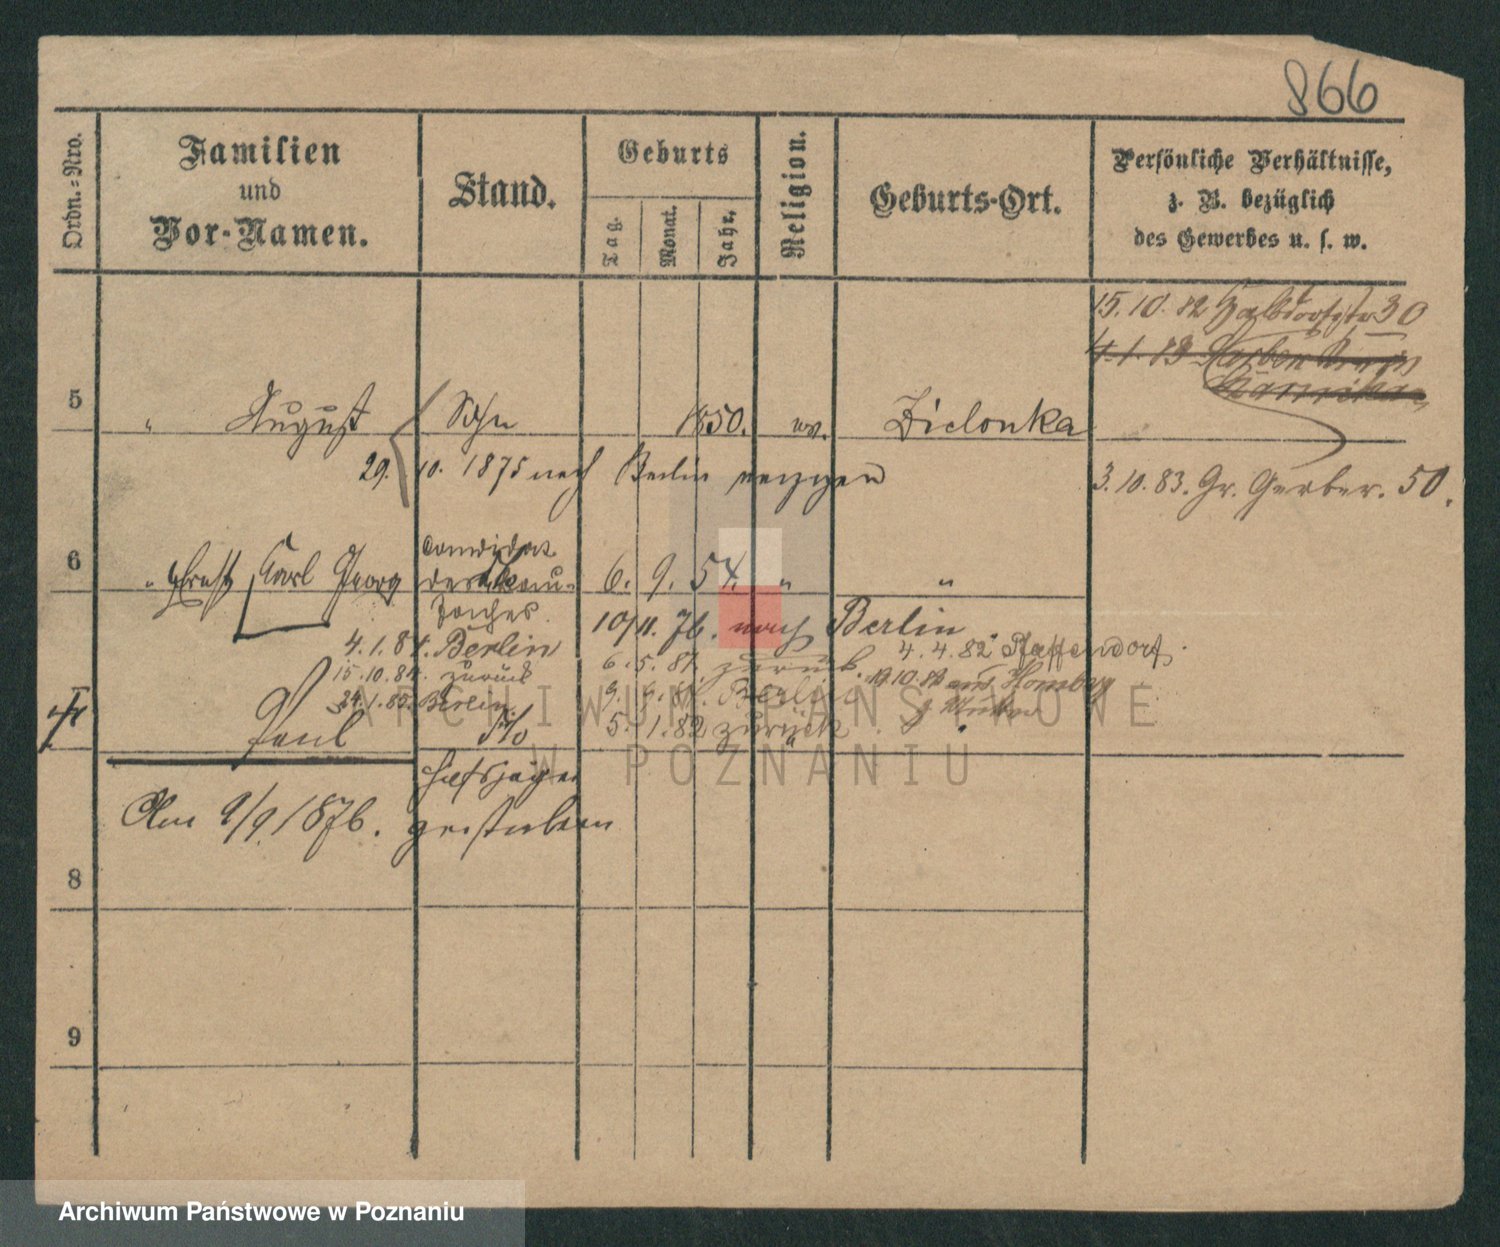 866
Ordn.-Nro.
Familien
und
Vor-Namen.
Stand.
Geburts
Tag.
Monat.
Jahr.
Religion.
Geburts-Ort.
Persönliche Verhältnisse,
z. B. bezüglich
des Gewerbes u. s. w.
15.10.82 Halbdorfstr 30
4.1.83
5 " August Sohn 1850. ev. Zielonka
29. 10. 1875 nach Berlin verzogen
3.10.83. Gr. Gerber. 50.
6 " Ernst Carl Georg Candidat 6. 9. 54. " "
des
Faches.
10/11. 76. nach Berlin
4.1.84. Berlin
6.5.81. zurück.
4.4.82 Pfaffendorf.
15.10.84. zurück
19.10.82 aus
24.1.85. Berlin
Berlin
7 Paul
5.1.82 zurück
Am 9/9. 1876. gestorben
8
9
ARCHIWUM PAŃSTWOWE
W POZNANIU
Archiwum Państwowe w Poznaniu